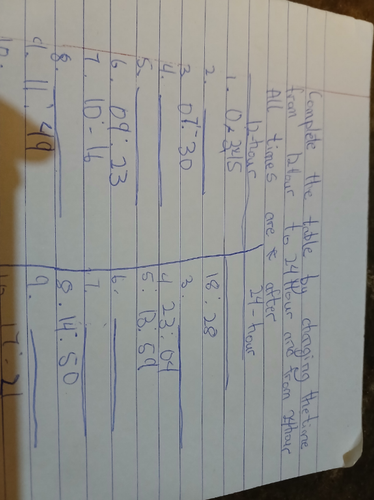 Complete the table by changing the time
from 12hour to 24Hour and from 24hour
All times are after
12-hour 24-hour
1. 02:45
2. 18:28
3. 07:30 3.
4. 4. 23:04
5. 5. 13:59
6. 09:23 6.
7. 10:16 7.
8. 8. 14:50
9. 11:49 9.
10.